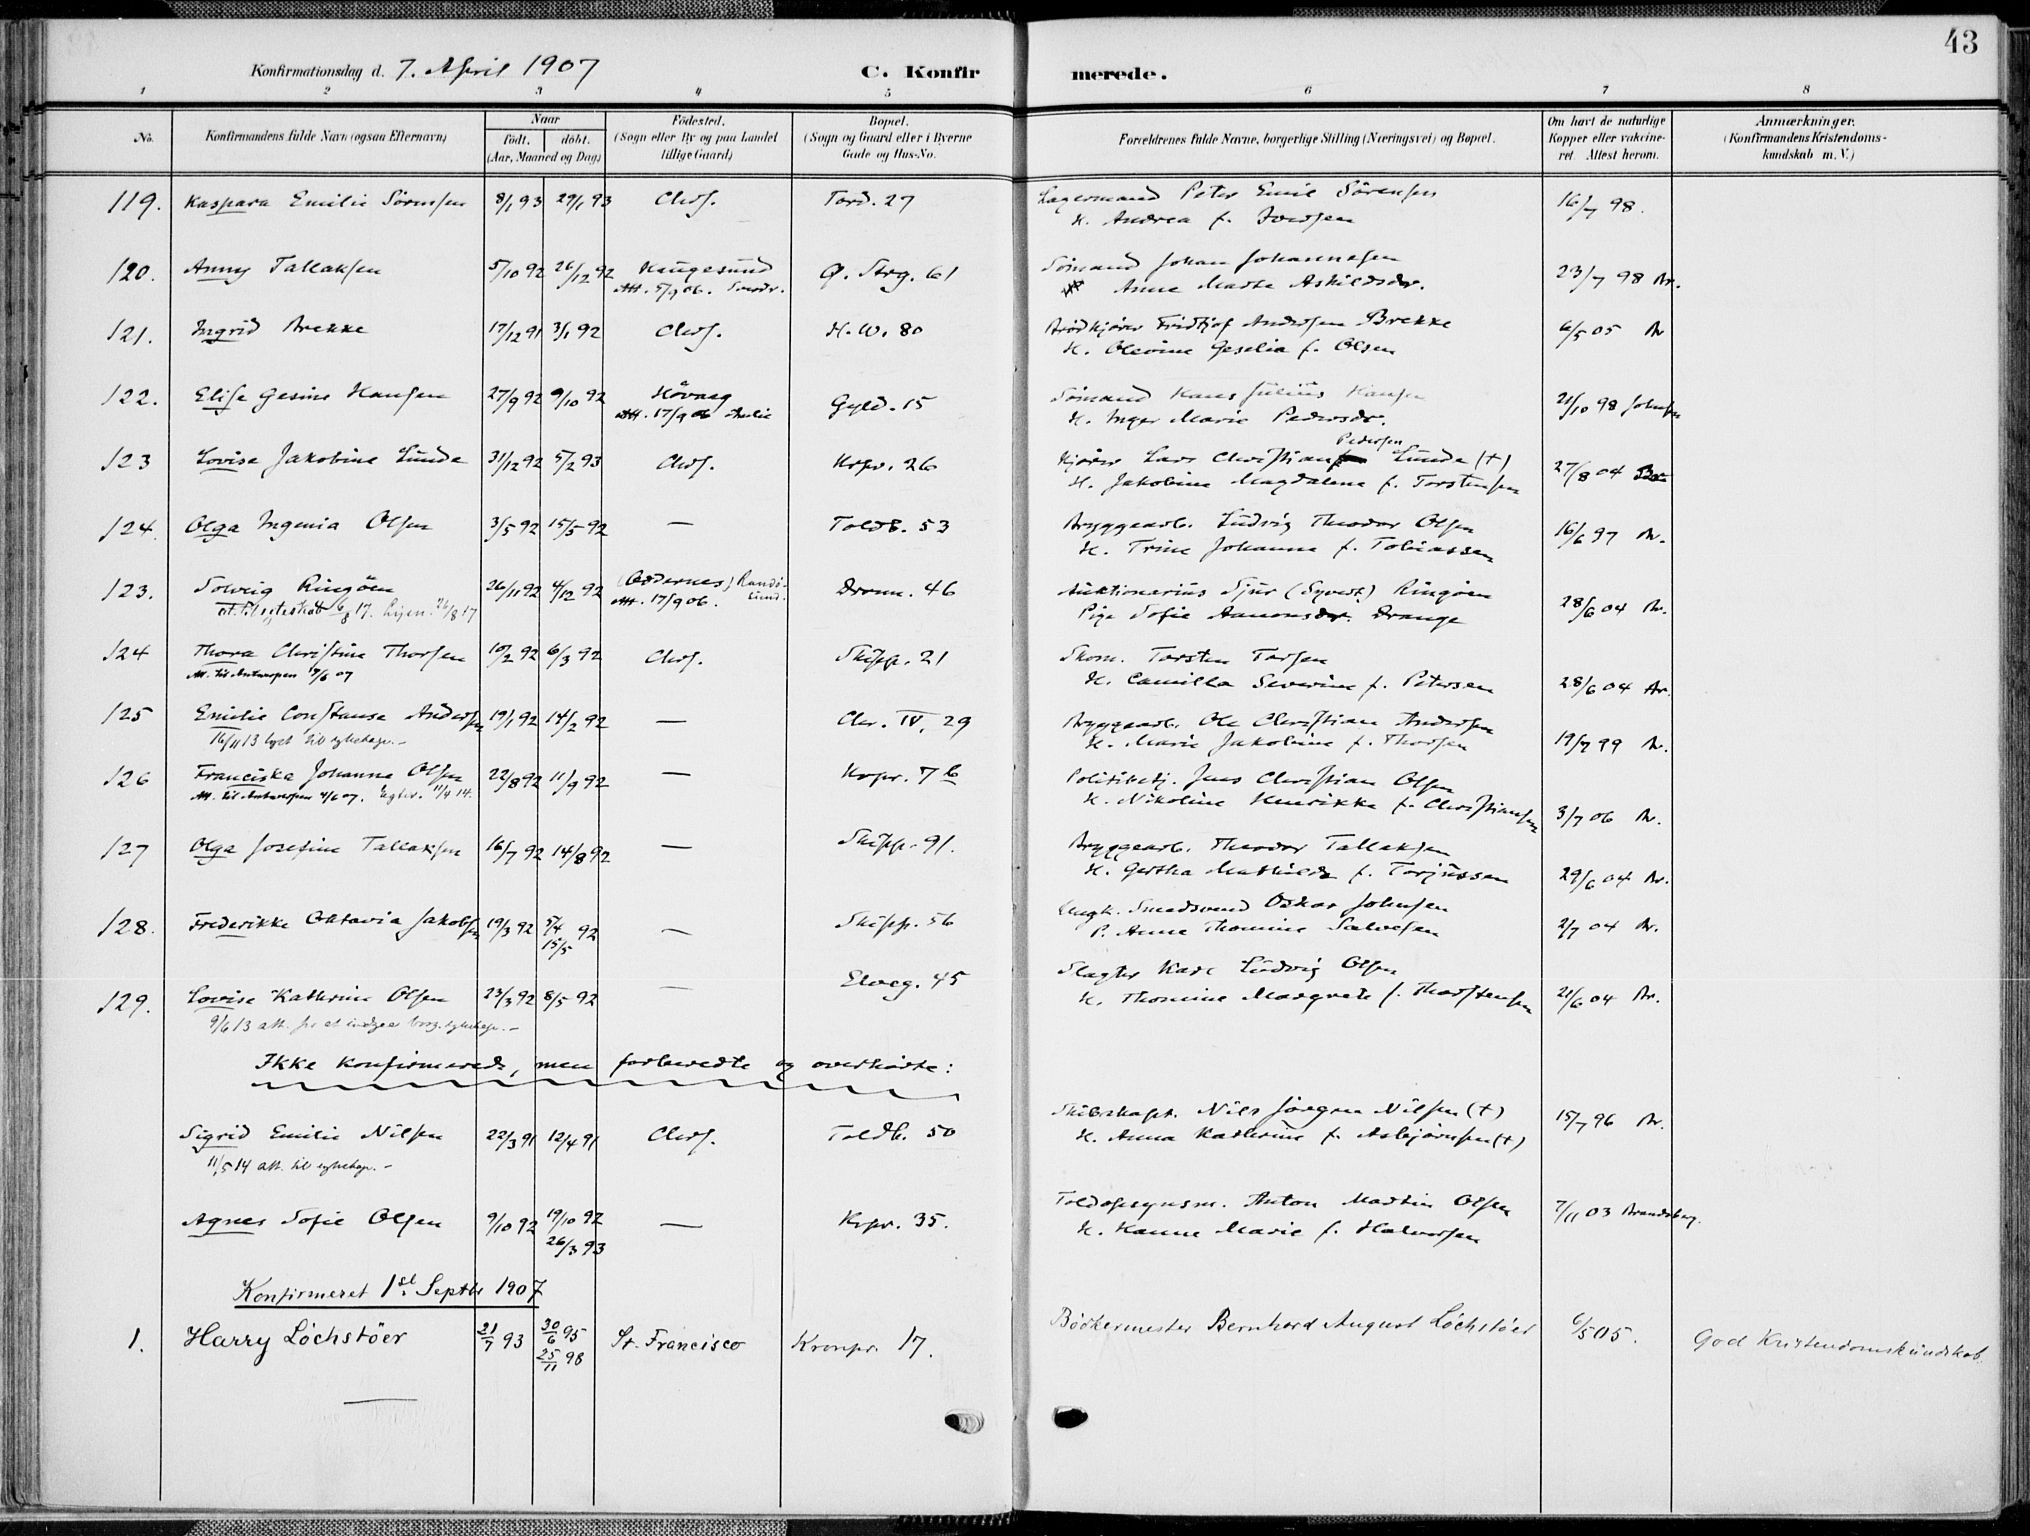 43
Konfirmationsdag d. 7. April 1907 C. Konfirmerede.
1 2 3 4 5 6 7 8
No. Konfirmandens fulde Navn (ogsaa Efternavn) Naar født. døbt. (Aar, Maaned og Dag) Fødested. (Sogn eller By og paa Landet tillige Gaard) Bopæl. (Sogn og Gaard eller i Byerne Gade og Hus-No. Forældrenes fulde Navne, borgerlige Stilling (Næringsvei) og Bopæl. Om havt de naturlige Kopper eller vakcineret. Attest herom. Anmærkninger. (Konfirmandens Kristendomskundskab m. V.)
119. Kaspara Emilie Sörensen 8/1 93 29/1 93 Chrs. Tord. 27 Lagermand Peter Emil Sörensen 16/7 98.
H. Andrea f. Iversen
120. Anny Tallaksen 5/10 92 26/12 92 Haugesund Ø. Strg. 61 Sömand Johan Johannesen 23/7 98 Br.
Att. 5/9 06. Anna Marta Askildsdr.
121. Ingrid Brekke 17/12 91 3/1 92 Chrs. H. W. 80 Brödkjörer Fridtjof Andersen Brekke 6/5 05 Br
H. Olevine Geselia f. Olsen
122. Elise Gesine Hansen 27/9 92 9/10 92 Hövaag Gyld. 15 Sömand Hans Julius Hansen 21/10 98 Johnsen
Att. 17/9 06 H. Inger Marie Pedersdr.
123 Lovise Jakobine Lunde 31/12 92 5/2 93 Chrs. Krpr. 26 Kjörer Lars Christian Pedersen Lunde (+) 27/8 04
H. Jakobine Magdalene f. Torstensen
124. Olga Ingenia Olsen 3/5 92 15/5 92 — Toldb. 53 Bryggearb. Ludvig Theodor Olsen 16/6 97 Br.
H. Trine Johanne f. Tobiassen
123. Solveig Ringöen 26/11 92 4/12 92 (Oddernes) Randösund. Dronn. 46 Auktionarius Sjur (Syvert) Ringöen 28/6 04 Br.
att. til egteskab 6/8 17. 26/8 17 Att. 17/9 06. Pige Sofie Aanonsdr. Drange
124 Thora Christine Thorsen 10/2 92 6/3 92 Chrs. Skipp. 21 Skom. Torsten Torsen 28/6 04 Br.
Att. til Antwerpen 17/6 07 H. Camilla Severine f. Petersen
125 Emilie Constanse Andersen 19/1 92 14/2 92 — Chr. IV. 29 Bryggearb. Ole Christian Andersen 19/7 99 Br.
16/11 13 lyst til sykehege.— H. Marie Jakobine f. Thorsen
126 Franciska Johanna Olsen 22/8 92 11/9 92 — Krpr. 7 b Politibetj. Jens Christian Olsen
Att. til Antwerpen 4/6 07. Egtev. 11/4 14. H. Nikoline Henrikke f. Christiansen 3/7 06 Br.
127 Olga Josefine Tallaksen 16/7 92 14/8 92 — Skipp. 91. Bryggearb. Theodor Tallaksen
H. Gertha Mathilde f. Torjussen 29/6 04 Br.
128. Frederikke Oktavia Jakobsen 19/3 92 5/4 15/5 92 — Skipp. 56 Ungk. Smedsvend Oskar Johnsen 2/7 04 Br.
P. Anne Thomine Salvesen
129. Lovise Kathrine Olsen 23/3 92 8/5 92 — Elveg. 45 Slagter Karl Ludvig Olsen
9/6 13 att. H. Thomine Margrete f. Thorstensen 21/6 04 Br.
Ikke konfirmerede, men forberedte og overhörte:
Sigrid Emilie Nilsen 22/3 91 12/4 91 Chrs. Toldb. 50 Skibskapt. Nils Jörgen Nilsen (+) 15/7 96 Br.
11/5 14 att. til sykehege.— H. Anna Kathrine f. Asbjörnsen (+)
Agnes Sofie Olsen 9/10 92 19/10 92 26/3 93 — Krpr. 35. Toldopsynsm. Anton Martin Olsen 7/11 03 Brandsberg.
H. Hanne Marie f. Halvorsen
Konfirmeret 1st Septbr 1907
1. Harry Löchstöer 21/7 93 30/6 95 25/11 98 St. Francisco Kronpr. 17. Bödkermester Bernhard August Löchstöer 6/5 05. God Kristendomskundskab.